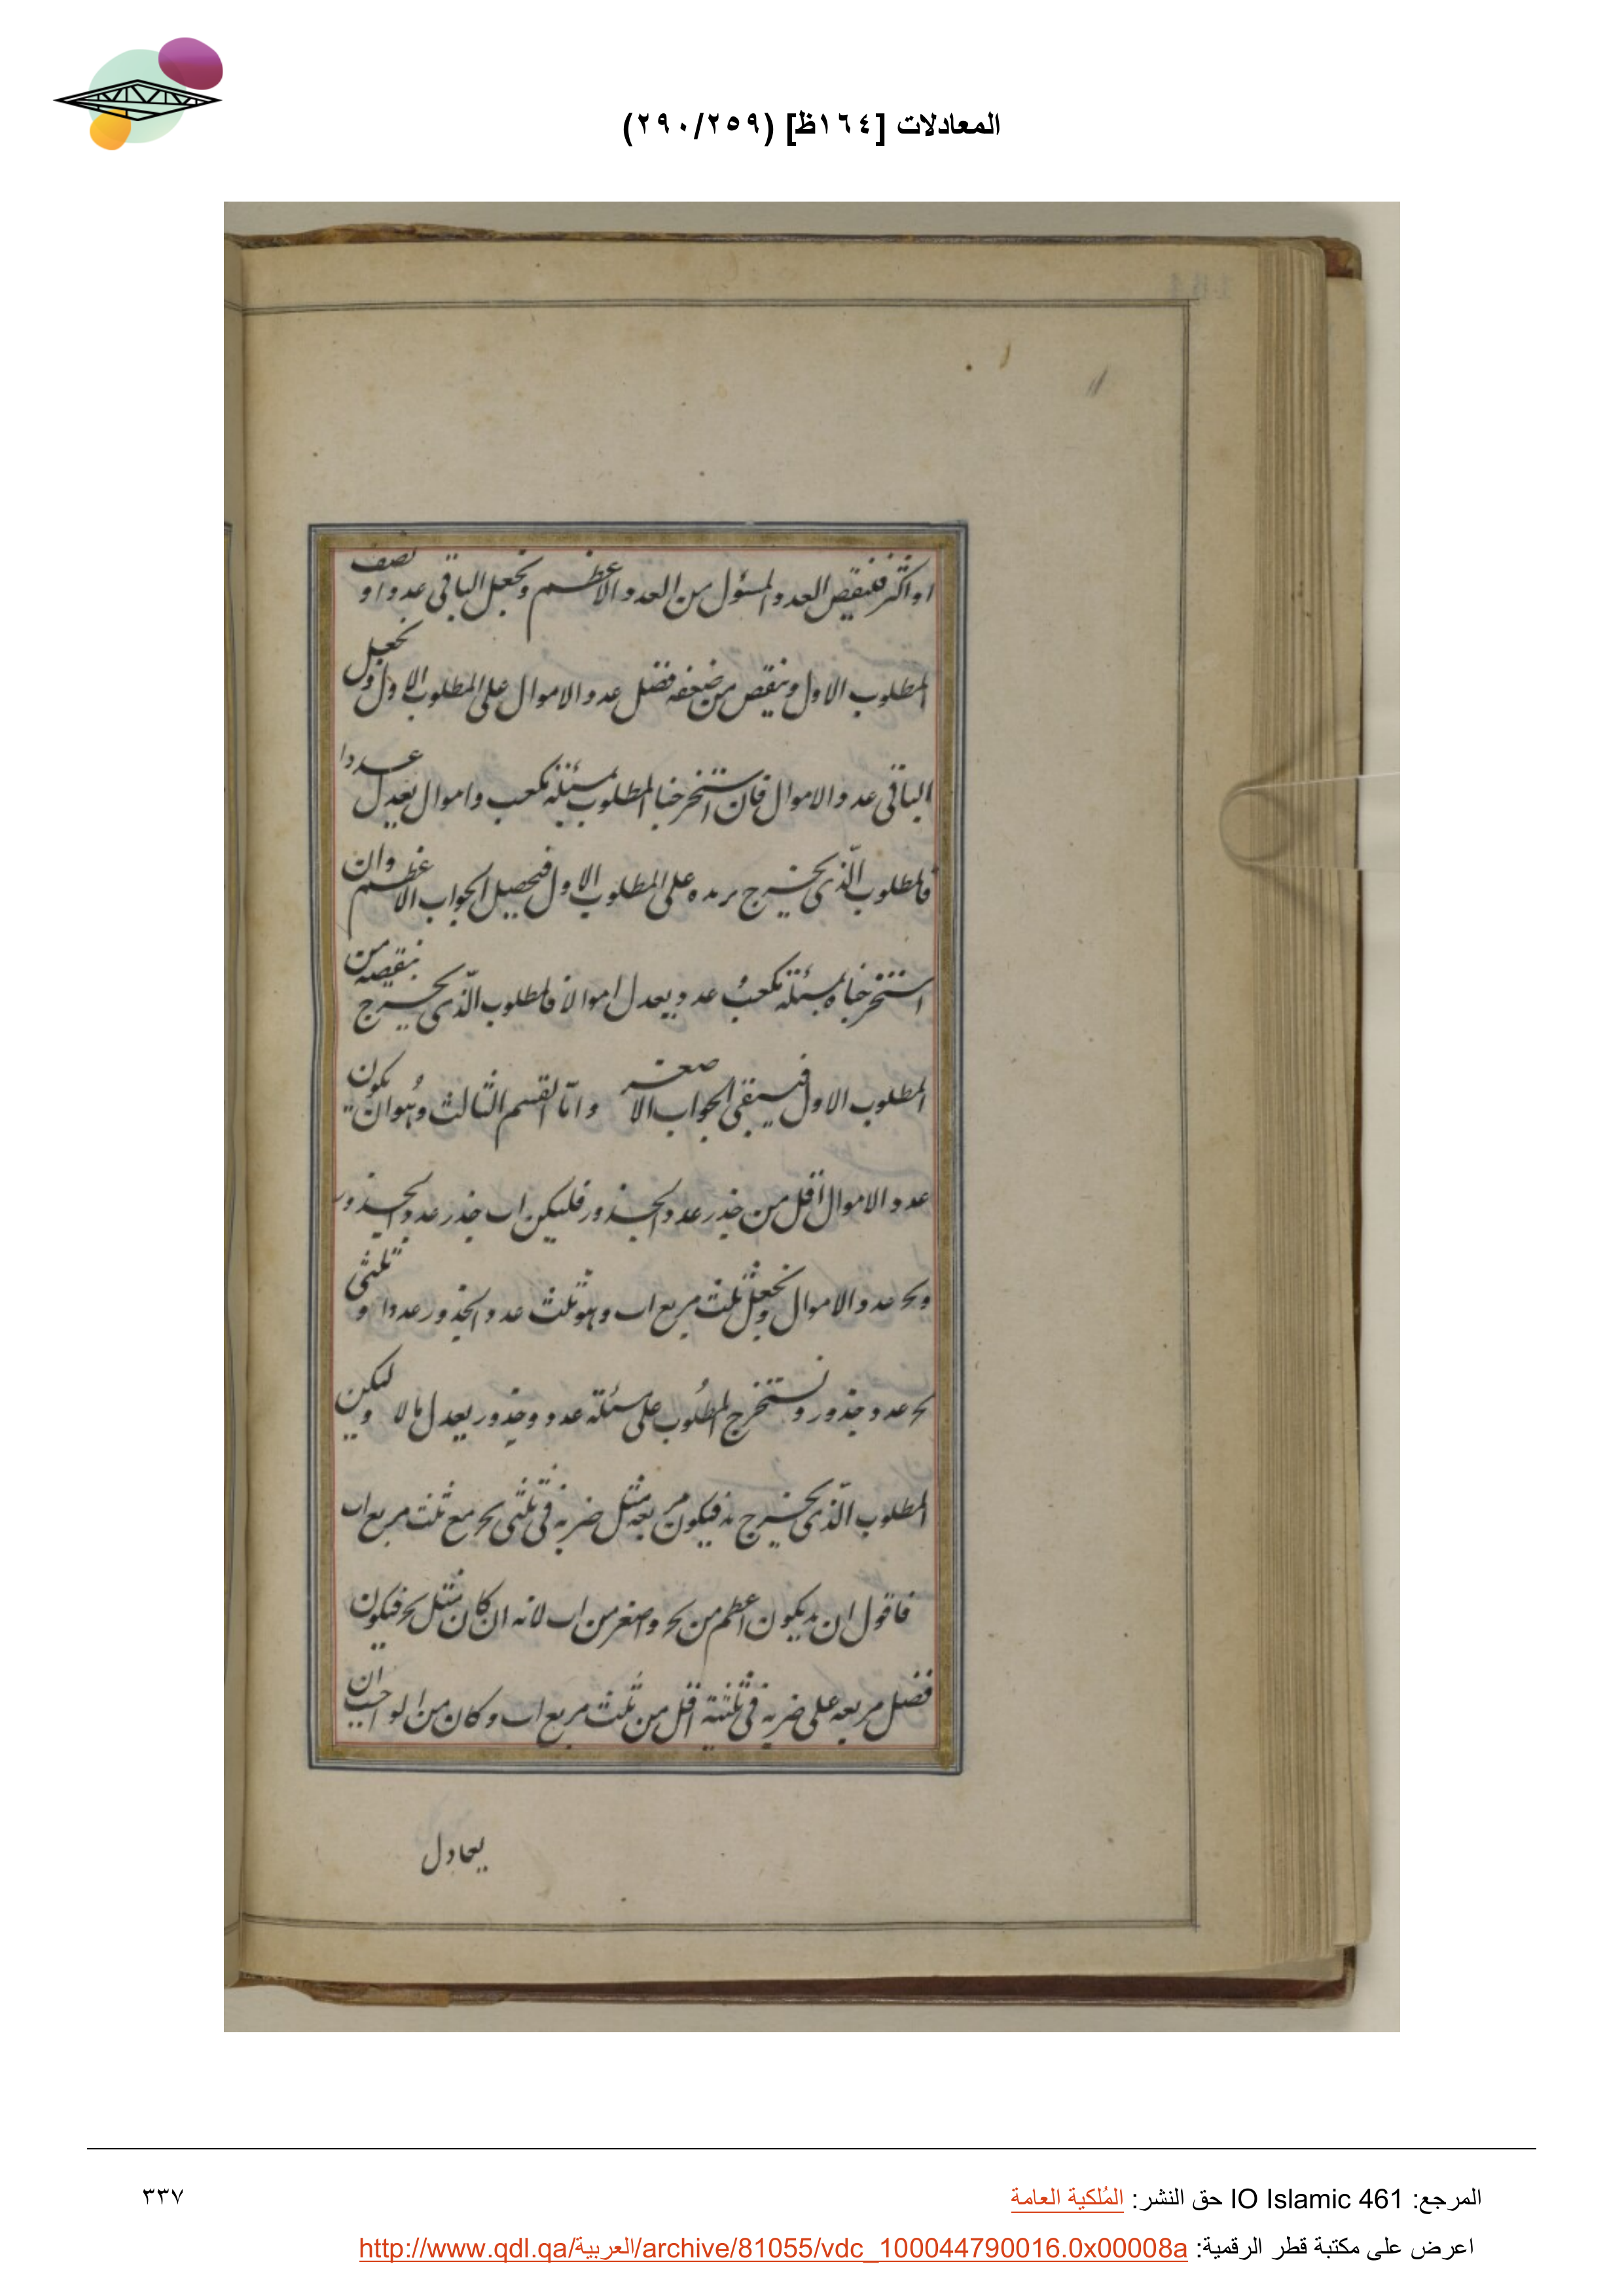 المعادلات [١٦٤ظ] (٢٩٠/٢٥٩)
او اكثر فننقص العدد المسؤل من العدد الاعظم ونجعل الباقى عددا و نصف
المطلوب الاول وننقص من ضعفه فضل عدد الاموال على المطلوب الاول ونجعل
الباقى عدد الاموال فان استخرجنا المطلوب بمسئلة مكعب واموال يعدل عددا
فالمطلوب الّذى يخرج نزيده على المطلوب الاول فيحصل الجواب الاعظم وان
استخرجناه بمسئلة مكعب وعدد يعدل اموالا فالمطلوب الّذى يخرج ننقصه من
المطلوب الاول فيبقى الجواب الاصغر وامّا القسم الثالث وهُوان يكون
عدد الاموال اقل من جذر عدد الجذور فليكن اب جذر عدد الجذور
وبح عدد الاموال ونجعل ثلث مربع اب وهو ثلث عدد الجذور عددا و ثلثى
بح عدد جذور ونستخرج المطلُوب على مسئلة عدد وجذور يعدل مالا وليكن
المطلوب الّذى يخرج بد فيكون مربعه مثل ضربه فى ثلثى بح مع ثلث مربع اب
فاقول ان بد يكون اعظم من بح واصغر من اب لانه ان كان مثل بح فيكون
فضل مربعه على ضربه فى ثلثيه اقل من ثلث مربع اب وكان من الواجب ان
يعادل
المرجع: IO Islamic 461 حق النشر: المُلكية العامة
٣٣٧
اعرض على مكتبة قطر الرقمية: http://www.qdl.qa/العربية/archive/81055/vdc_100044790016.0x00008a